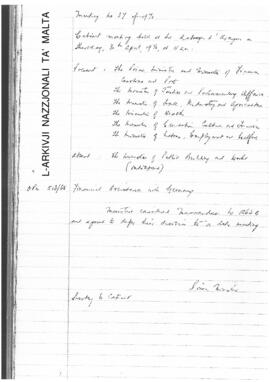 L-ARKIVJI NAZZJONALI TA' MALTA
Meeting no 27 of 1970
Cabinet meeting held at the Auberge d'Aragon on
Thursday, 30th April, 1970, at 11 a.m.
Present: The Prime Minister and Minister of Finance
Customs and Port
The Minister of Justice and Parliamentary Affairs
The Minister of Trade, Industry and Agriculture
The Minister of Health
The Minister of Education, Culture and Tourism
The Minister of Labour, Employment and Welfare
Absent: The Minister of Public Building and Works
(indisposed)
Financial Assistance with Germany
Ministers considered Memorandum by
and agreed to defer their decision to a later meeting
Prime Minister
Secretary to Cabinet